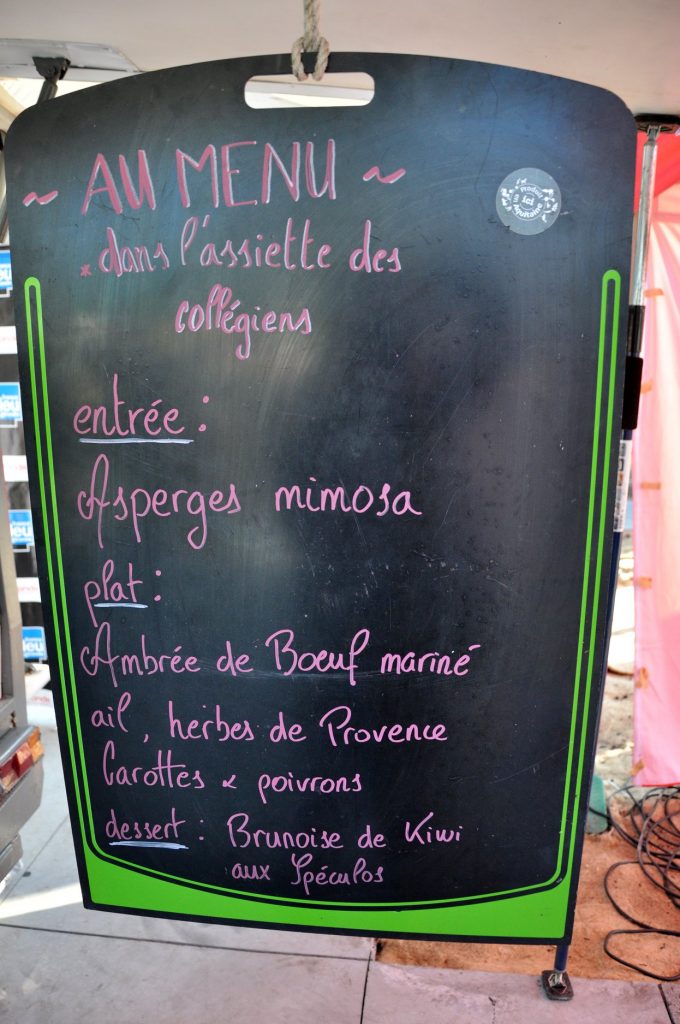 ~ AU MENU ~
* dans l'assiette des
collégiens
entrée :
Asperges mimosa
plat :
Ambrée de Boeuf mariné
ail, herbes de Provence
Carottes & poivrons
dessert : Brunoise de Kiwi
aux Spéculos
un Produit
ici
Aquitaine